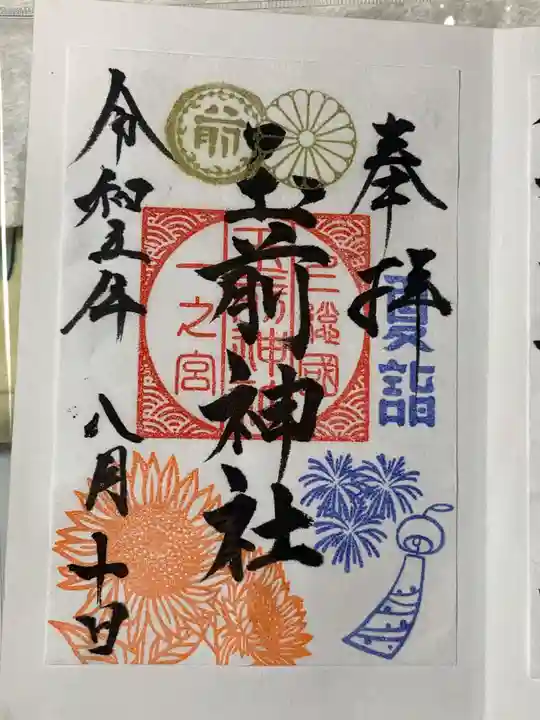 奉拝
夏詣
上総國
玉前神社
一之宮
前
玉前神社
令和五年
八月十日